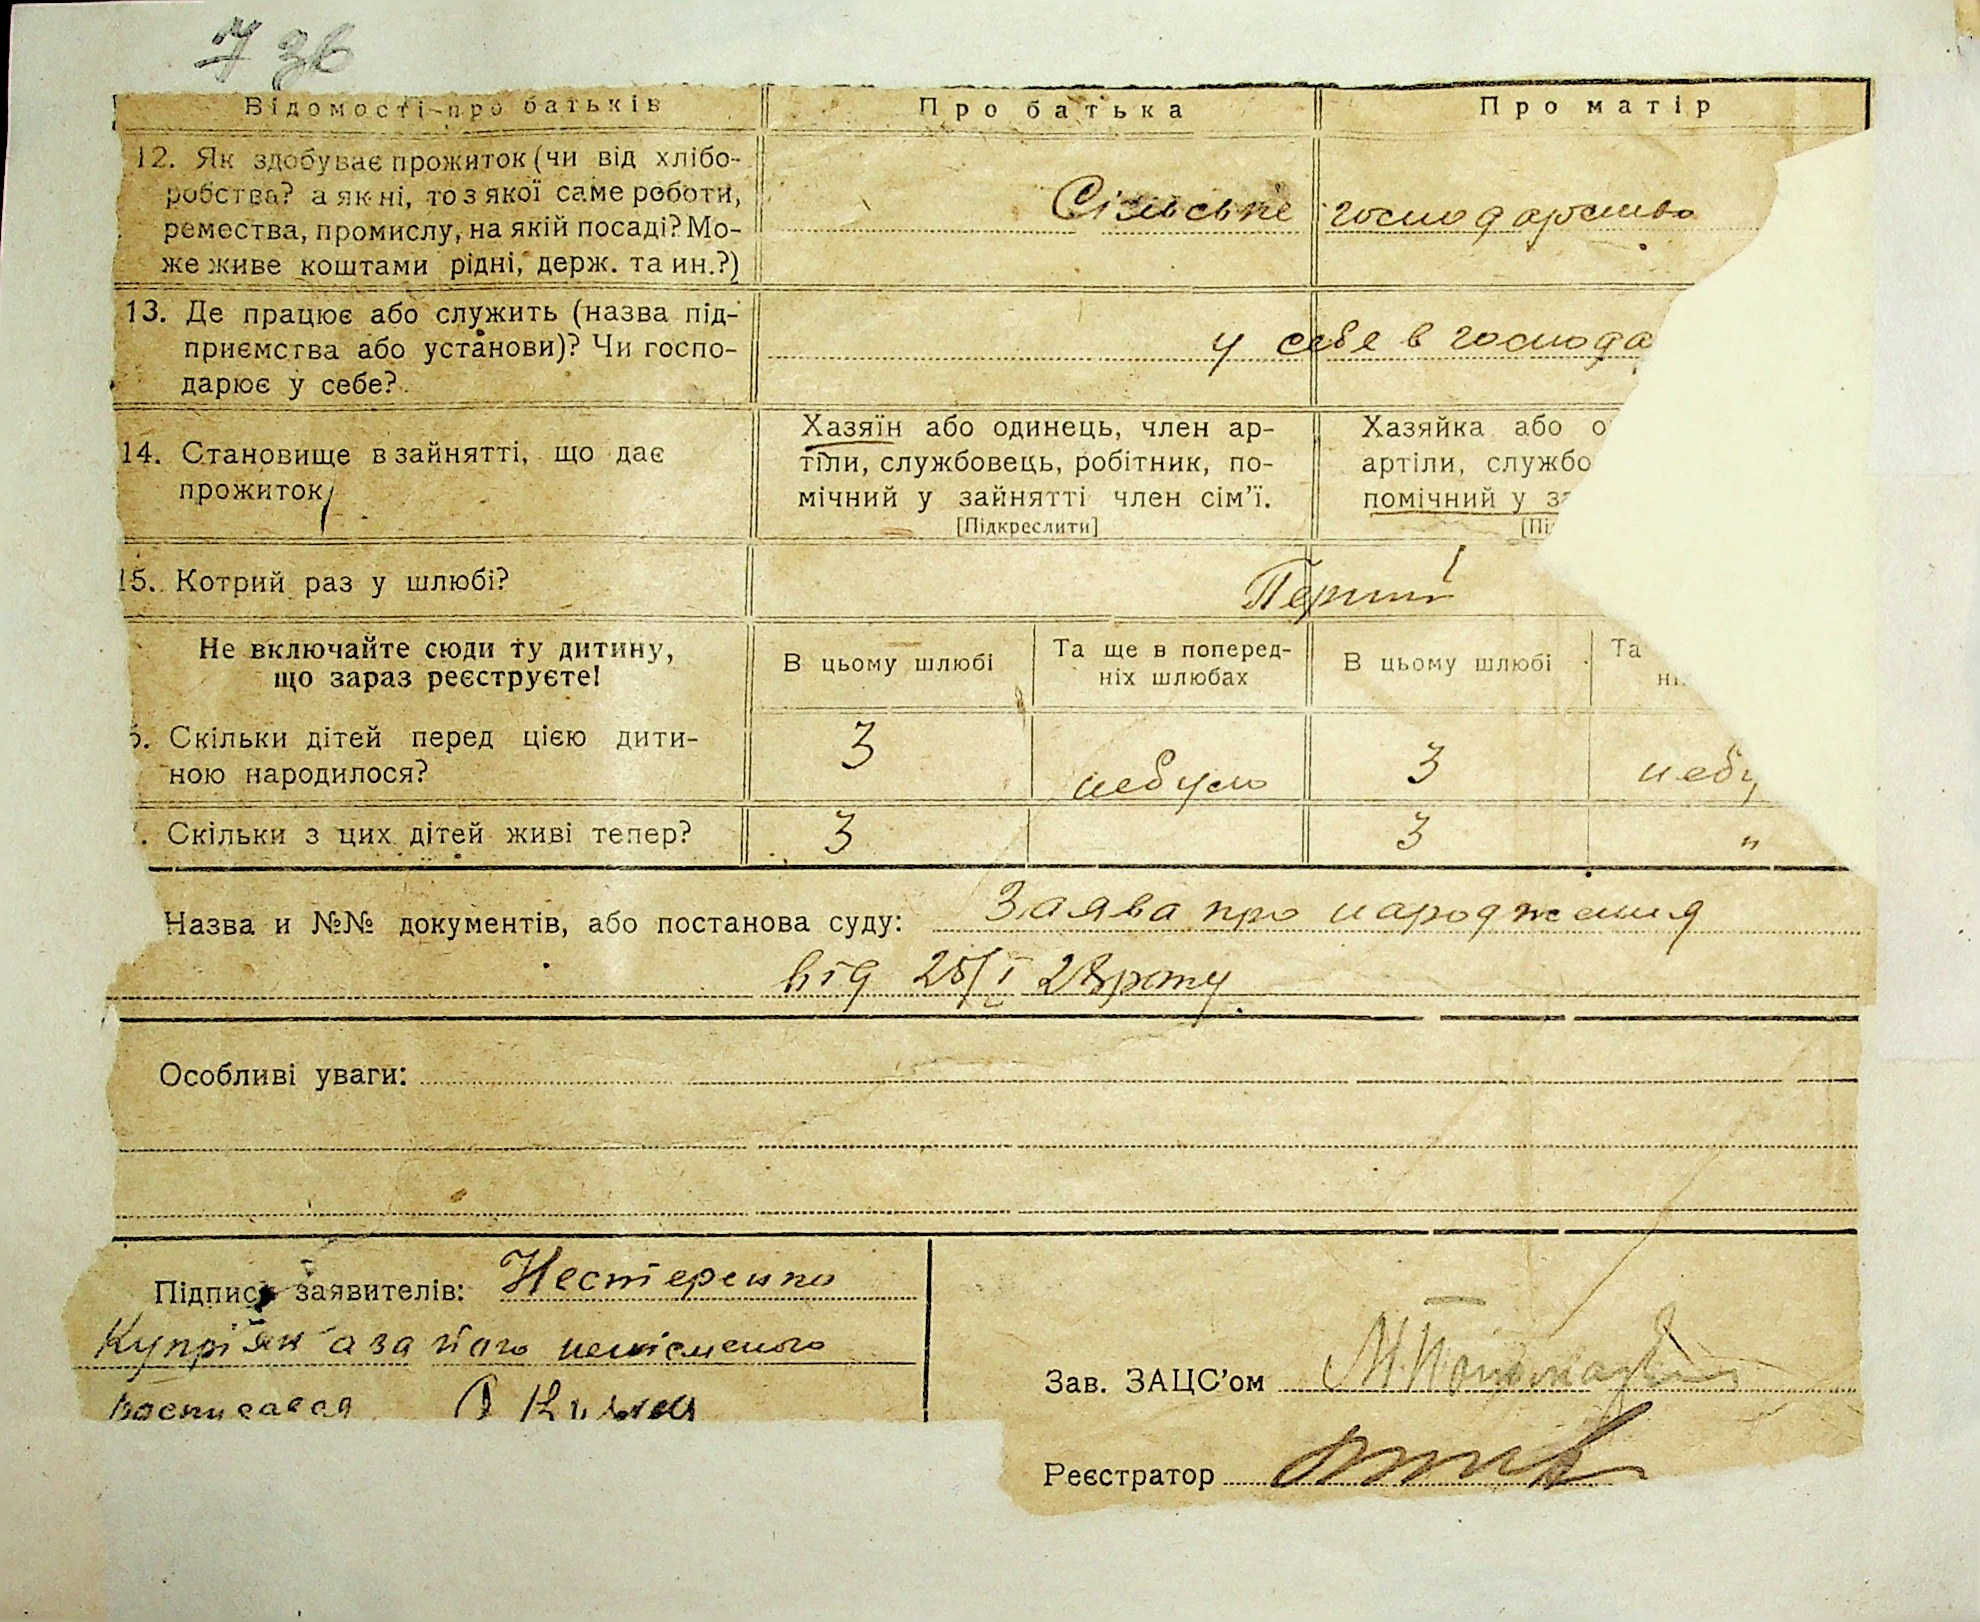 7 зв
Відомості про батьків Про батька Про матір
12. Як здобуває прожиток (чи від хлібо-
робства? а як ні, то з якої саме роботи,
ремества, промислу, на якій посаді? Мо-
же живе коштами рідні, держ. та ин.?)
Сільське господарство
13. Де працює або служить (назва під-
приємства або установи)? Чи госпо-
дарює у себе?
у себе в господа
14. Становище в зайнятті, що дає
прожиток
Хазяїн або одинець, член ар-
тіли, службовець, робітник, по-
мічний у зайнятті член сім'ї.
[Підкреслити]
Хазяйка або о
артіли, службо
помічний у за
[Під
15. Котрий раз у шлюбі?
Перший
Не включайте сюди ту дитину,
що зараз реєструєте!
В цьому шлюбі
Та ще в поперед-
ніх шлюбах
В цьому шлюбі
Та
ні
6. Скільки дітей перед цією дити-
ною народилося?
3 небуло 3 небу
. Скільки з цих дітей живі тепер?
3 3 "
Назва и №№ документів, або постанова суду: Заява про народження
від 25/I 28 року.
Особливі уваги:
Підписи заявителів: Нестеренко
Купріян а за його неписьменого
росписався
Зав. ЗАЦС'ом
Реєстратор